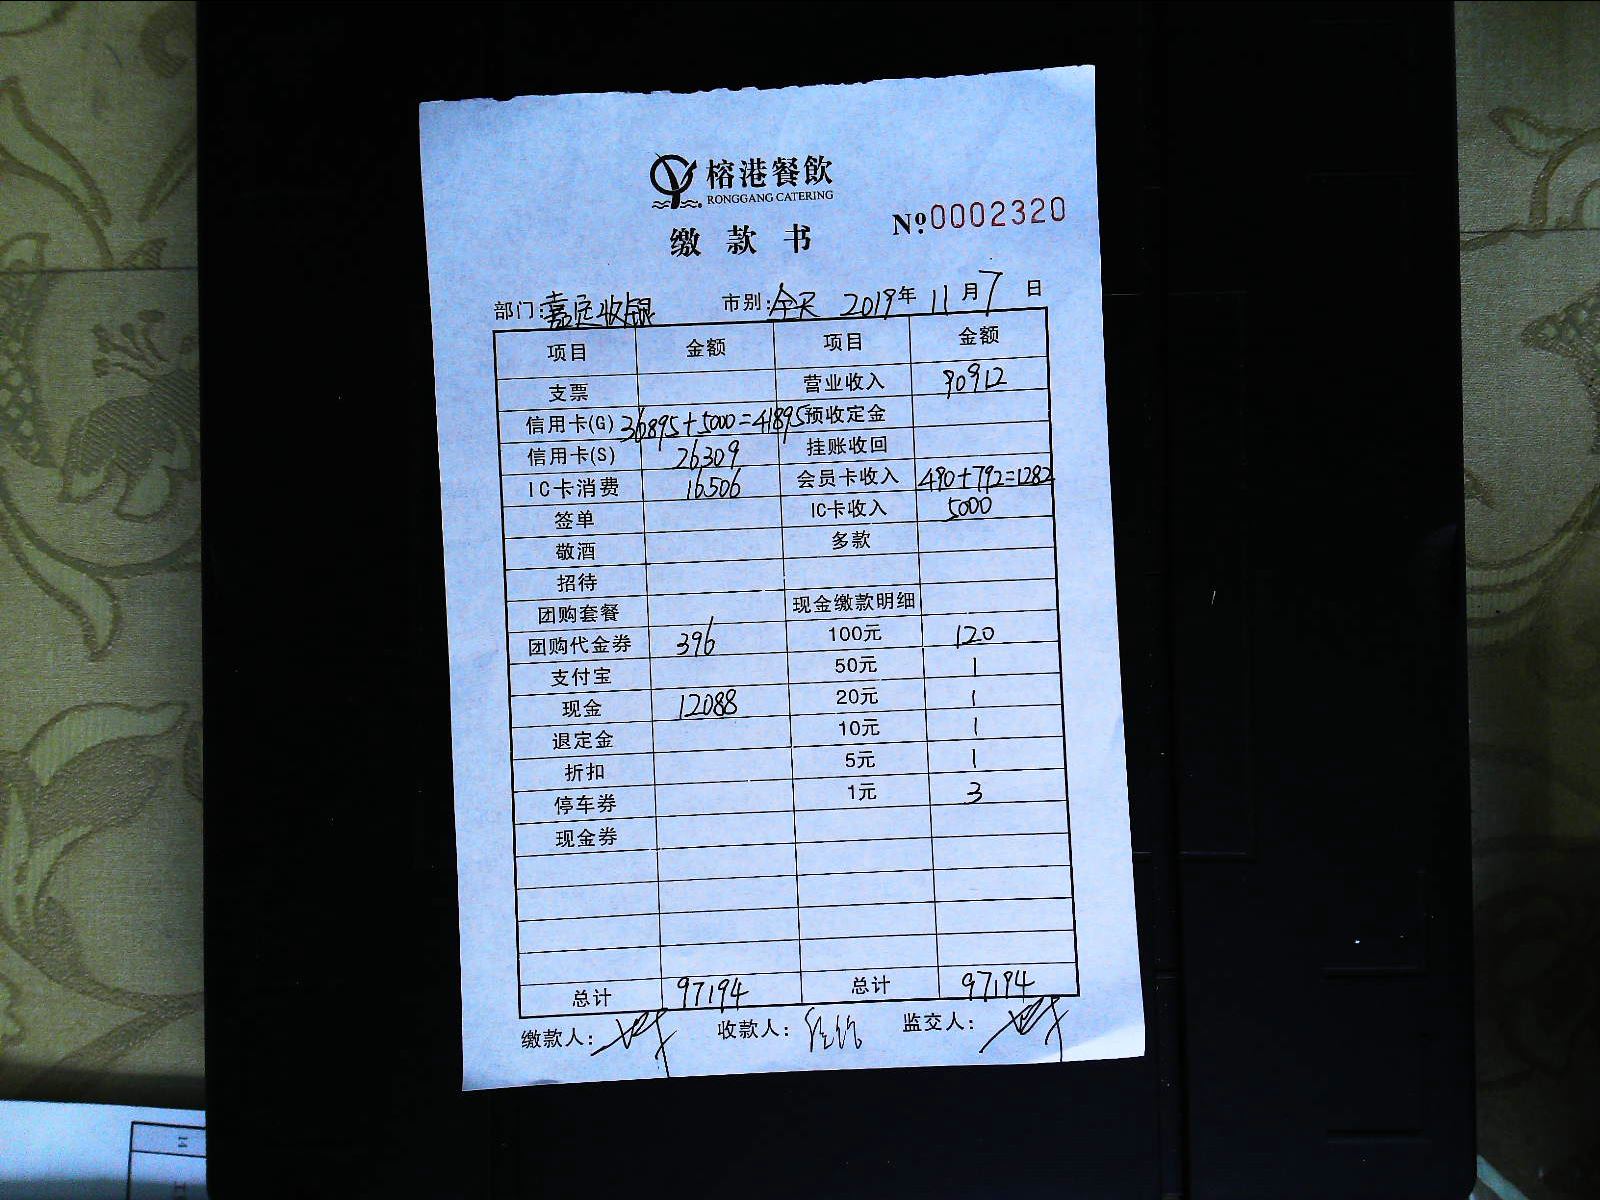 榕港餐飲
RONGGANG CATERING
缴款书
№0002320
部门:嘉定收银 市别:全天 2019年11月7日
项目 金额 项目 金额
支票 营业收入 90912
信用卡(G) 36895+5000=41895 预收定金
信用卡(S) 26309 挂账收回
IC卡消费 16506 会员卡收入 490+792=1282
签单 IC卡收入 5000
敬酒 多款
招待
团购套餐 现金缴款明细
团购代金券 396 100元 120
支付宝 50元 1
现金 12088 20元 1
退定金 10元 1
折扣 5元 1
停车券 1元 3
现金券
总计 97194 总计 97194
缴款人: 收款人: 监交人: